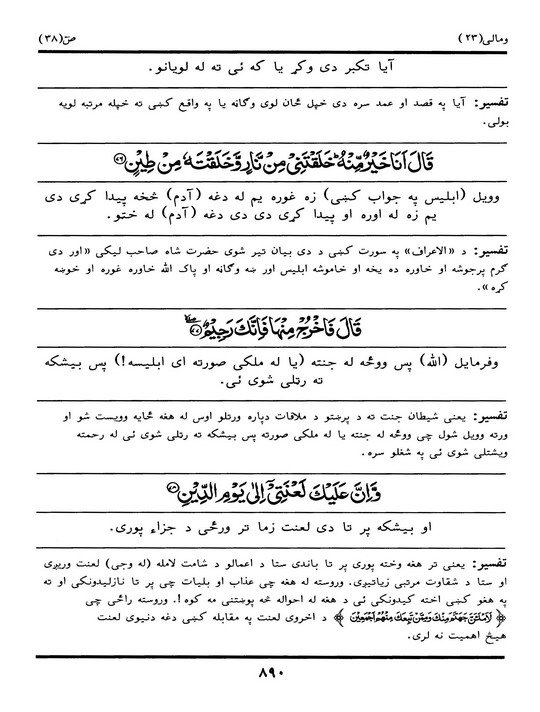 ومالي(٢٣) صٓ(٣٨)
آيا تكبر دى وكړ يا كه ئى ته له لويانو.
تفسير: آيا په قصد او عمد سره دى خپل ځان لوى وګاڼه يا په واقع كښى ته خپله مرتبه لويه
بولى.
قَالَ اَنَا خَيْرٌ مِّنْهُ خَلَقْتَنِىْ مِنْ نَّارٍ وَّخَلَقْتَهٗ مِنْ طِيْنٍ ﴿٧٦﴾
وويل (ابليس په جواب كښى) زه غوره يم له دغه (آدم) څخه پيدا كړى دى
يم زه له اوره او پيدا كړى دى دى دغه (آدم) له ختو.
تفسير: د «الاعراف» په سورت كښى د دى بيان تير شوى حضرت شاه صاحب ليكى «اور دى
ګرم پرجوشه او خاوره ده يخه او خاموشه ابليس اور ښه وګاڼه او پاک الله خاوره غوره او خوښه
كړه».
قَالَ فَاخْرُجْ مِنْهَا فَاِنَّكَ رَجِيْمٌ ﴿٧٧﴾
وفرمايل (الله) پس ووځه له جنته (يا له ملكى صورته اى ابليسه!) پس بيشكه
ته رټلى شوى ئى.
تفسير: يعنى شيطان جنت ته د پرښتو د ملاقات دپاره ورتلو اوس له هغه ځايه وويست شو او
ورته وويل شول چى ووځه له جنته يا له ملكى صورته پس بيشكه ته رټلى شوى ئى له رحمته
ويشتلى شوى ئى په شغلو سره.
وَّاِنَّ عَلَيْكَ لَعْنَتِىْٓ اِلٰى يَوْمِ الدِّيْنِ ﴿٧٨﴾
او بيشكه پر تا دى لعنت زما تر ورځى د جزاء پورى.
تفسير: يعنى تر هغه وخته پورى پر تا باندى ستا د اعمالو د شامت لامله (له وجى) لعنت وريږى
او ستا د شقاوت مرتبى زياتيږى. وروسته له هغه چى عذاب او بليات چى پر تا نازليدونكى او ته
په هغو كښى اخته كيدونكى ئى د هغه له احواله څه پوښتنى مه كوه!. وروسته راځى چى
﴿لَاَمْلَـَٔنَّ جَهَنَّمَ مِنْكَ وَمِمَّنْ تَبِعَكَ مِنْهُمْ اَجْمَعِيْنَ﴾ د اخروى لعنت په مقابله كښى دغه دنيوى لعنت
هيڅ اهميت نه لرى.
٨٩٠